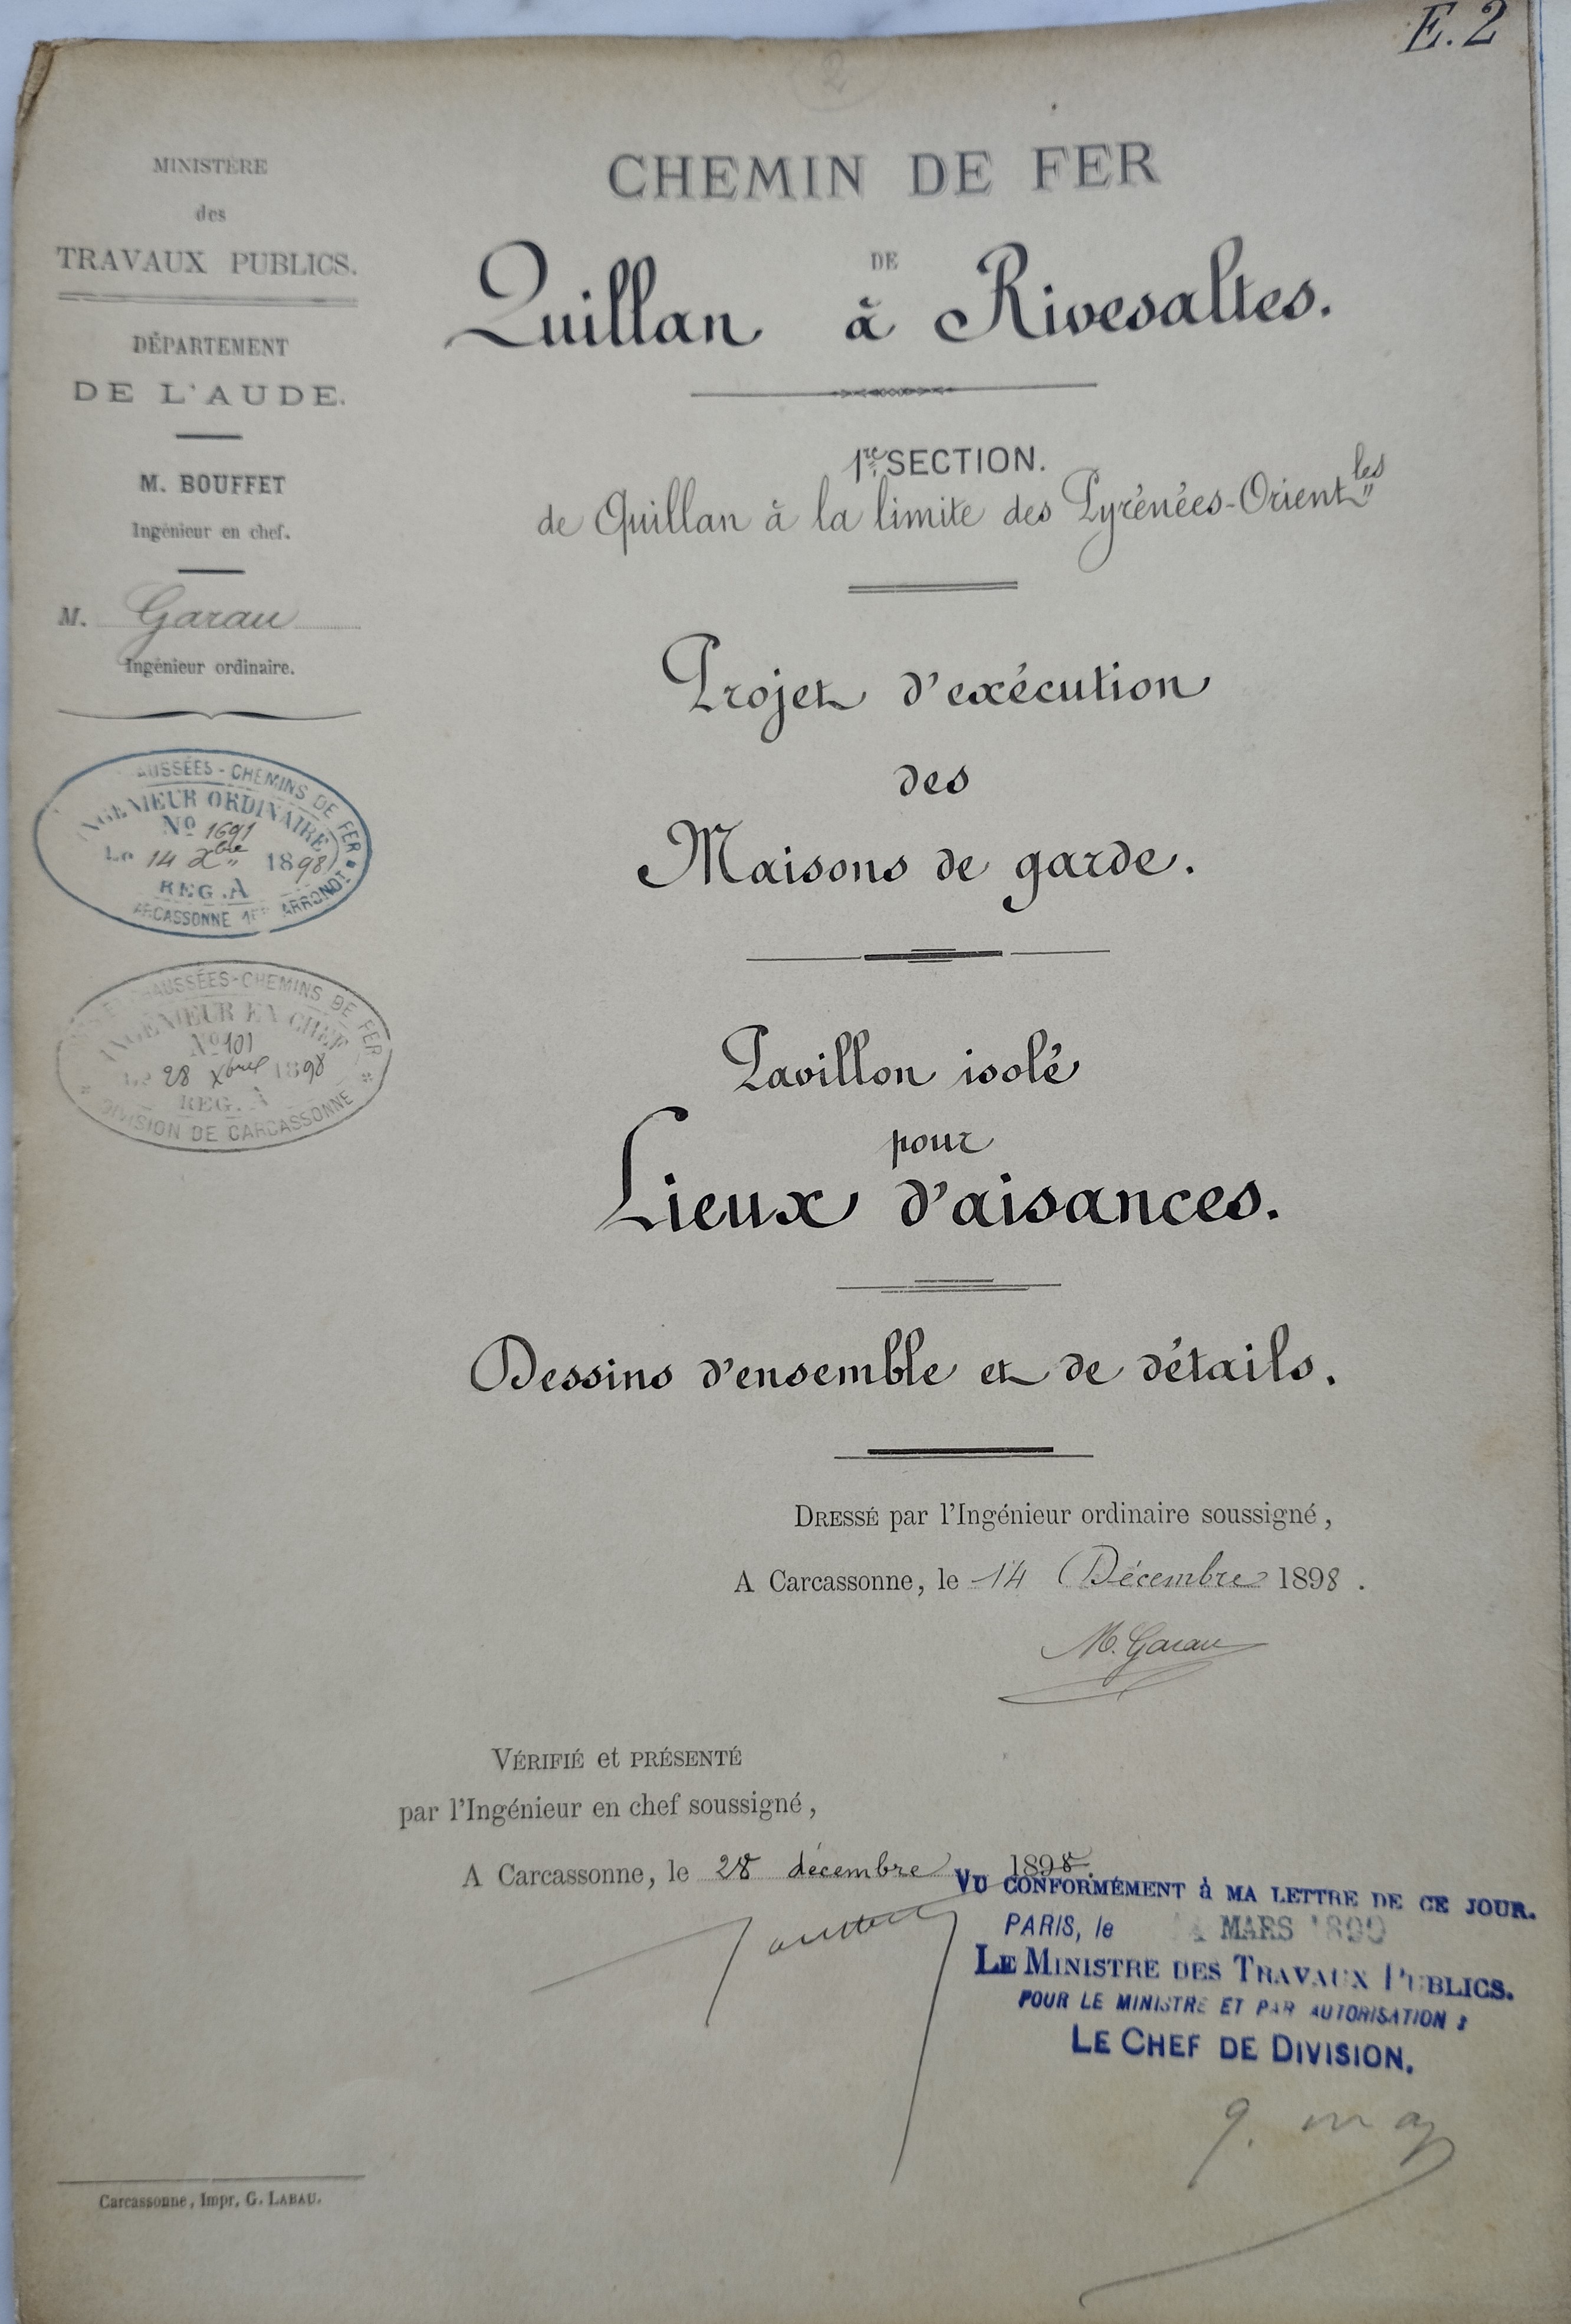 E.2
2
MINISTÈRE
des
TRAVAUX PUBLICS.
DÉPARTEMENT
DE L'AUDE.
M. BOUFFET
Ingénieur en chef.
M. Garau
Ingénieur ordinaire.
AUSSÉES - CHEMINS DE FER
INGENIEUR ORDINAIRE
No 1691
Le 14 Xbre 1898
REG. A
CARCASSONNE 1ER ARRONDT
AUSSÉES-CHEMINS DE FER
INGÉNIEUR EN CHEF
No 101
Le 28 Xbre 1898
REG. A
DIVISION DE CARCASSONNE
CHEMIN DE FER
DE
Quillan à Rivesaltes.
1re SECTION.
de Quillan à la limite des Pyrénées-Orientles
Projet d'exécution
des
Maisons de garde.
Pavillon isolé
pour
Lieux d'aisances.
Dessins d'ensemble et de détails.
DRESSÉ par l'Ingénieur ordinaire soussigné,
A Carcassonne, le 14 Décembre 1898.
M. Garau
VÉRIFIÉ et PRÉSENTÉ
par l'Ingénieur en chef soussigné,
A Carcassonne, le 28 décembre 1898.
VU CONFORMÉMENT à MA LETTRE DE CE JOUR.
PARIS, le 4 MARS 1899
LE MINISTRE DES TRAVAUX PUBLICS.
POUR LE MINISTRE ET PAR AUTORISATION :
LE CHEF DE DIVISION.
Carcassonne, Impr. G. LABAU.